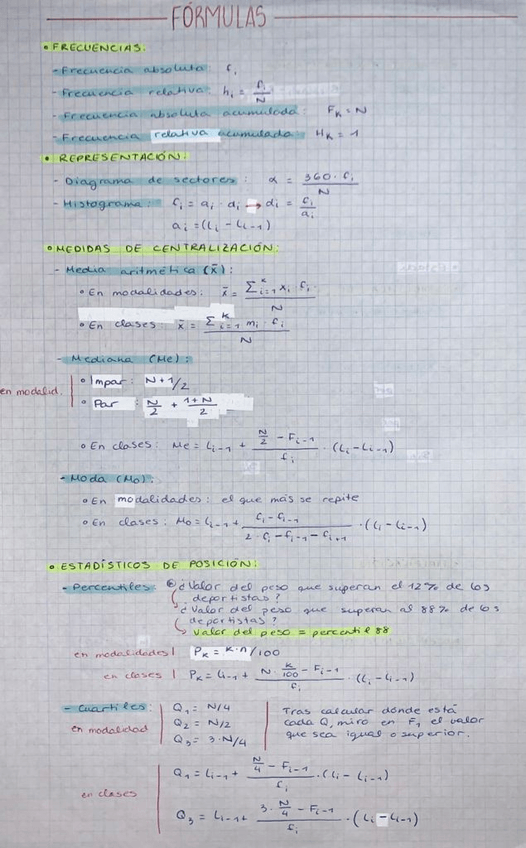 FÓRMULAS
• FRECUENCIAS:
- Frecuencia absoluta: fᵢ
- Frecuencia relativa: hᵢ = fᵢ/N
- Frecuencia absoluta acumulada: Fₖ = N
- Frecuencia relativa acumulada: Hₖ = 1
• REPRESENTACIÓN:
- Diagrama de sectores: α = 360·fᵢ/N
- Histograma: fᵢ = aᵢ · dᵢ → dᵢ = fᵢ/aᵢ
aᵢ = (Lᵢ - Lᵢ₋₁)
• MEDIDAS DE CENTRALIZACIÓN:
- Media aritmética (x̄):
• En modalidades: x̄ = Σᵏᵢ₌₁ xᵢ fᵢ / N
• En clases: x̄ = Σᵏᵢ₌₁ mᵢ fᵢ / N
- Mediana (Me):
en modalid.
• Impar: N+1/2
• Par: N/2 + 1+N/2
• En clases: Me = Lᵢ₋₁ + (N/2 - Fᵢ₋₁)/fᵢ · (Lᵢ - Lᵢ₋₁)
- Moda (Mo):
• En modalidades: el que más se repite
• En clases: Mo = Lᵢ₋₁ + (fᵢ - fᵢ₋₁)/(2·fᵢ - fᵢ₋₁ - fᵢ₊₁) · (Lᵢ - Lᵢ₋₁)
• ESTADÍSTICOS DE POSICIÓN:
- Percentiles: ¿Valor del peso que superan el 12% de los
deportistas?
¿Valor del peso que superan al 88% de los
deportistas?
↳ Valor del peso = percentil 88
en modalidades | Pₖ = k·n/100
en clases | Pₖ = Lᵢ₋₁ + (N · k/100 - Fᵢ₋₁)/fᵢ · (Lᵢ - Lᵢ₋₁)
- Cuartiles:
en modalidad
Q₁ = N/4
Q₂ = N/2
Q₃ = 3·N/4
Tras calcular dónde está
cada Q, miro en Fᵢ el valor
que sea igual o superior.
en clases
Q₁ = Lᵢ₋₁ + (N/4 - Fᵢ₋₁)/fᵢ · (Lᵢ - Lᵢ₋₁)
Q₃ = Lᵢ₋₁ + (3·N/4 - Fᵢ₋₁)/fᵢ · (Lᵢ - Lᵢ₋₁)